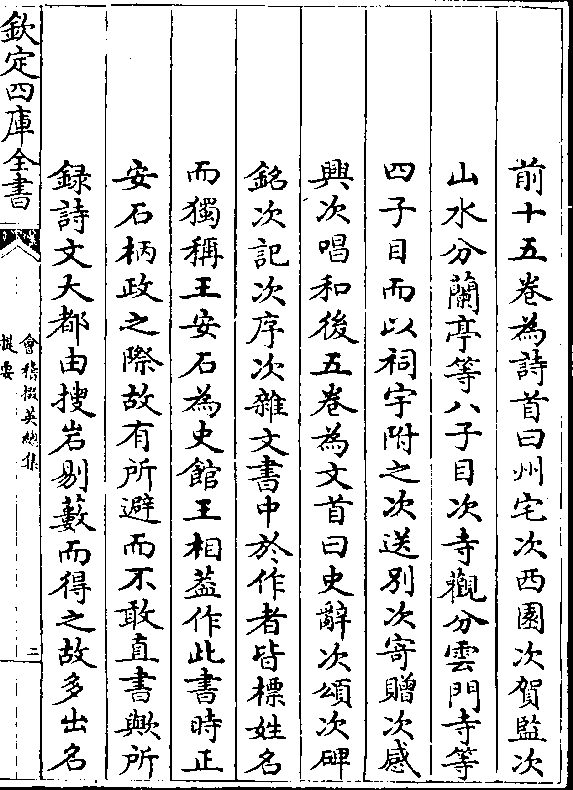 前十五卷為詩首曰州宅次西園次賀監次
山水分蘭亭等八子目次寺觀分雲門寺等
四子目而以祠宇附之次送别次寄贈次感
興次唱和後五卷為文首曰史辭次頌次碑
銘次記次序次雜文書中於作者皆標姓名
而獨稱王安石為史館王相葢作此書時正
安石柄政之際故有所避而不敢直書歟所
録詩文大都由搜岩剔藪而得之故多出名
欽定四庫全書
會稽掇英總集
提要
二